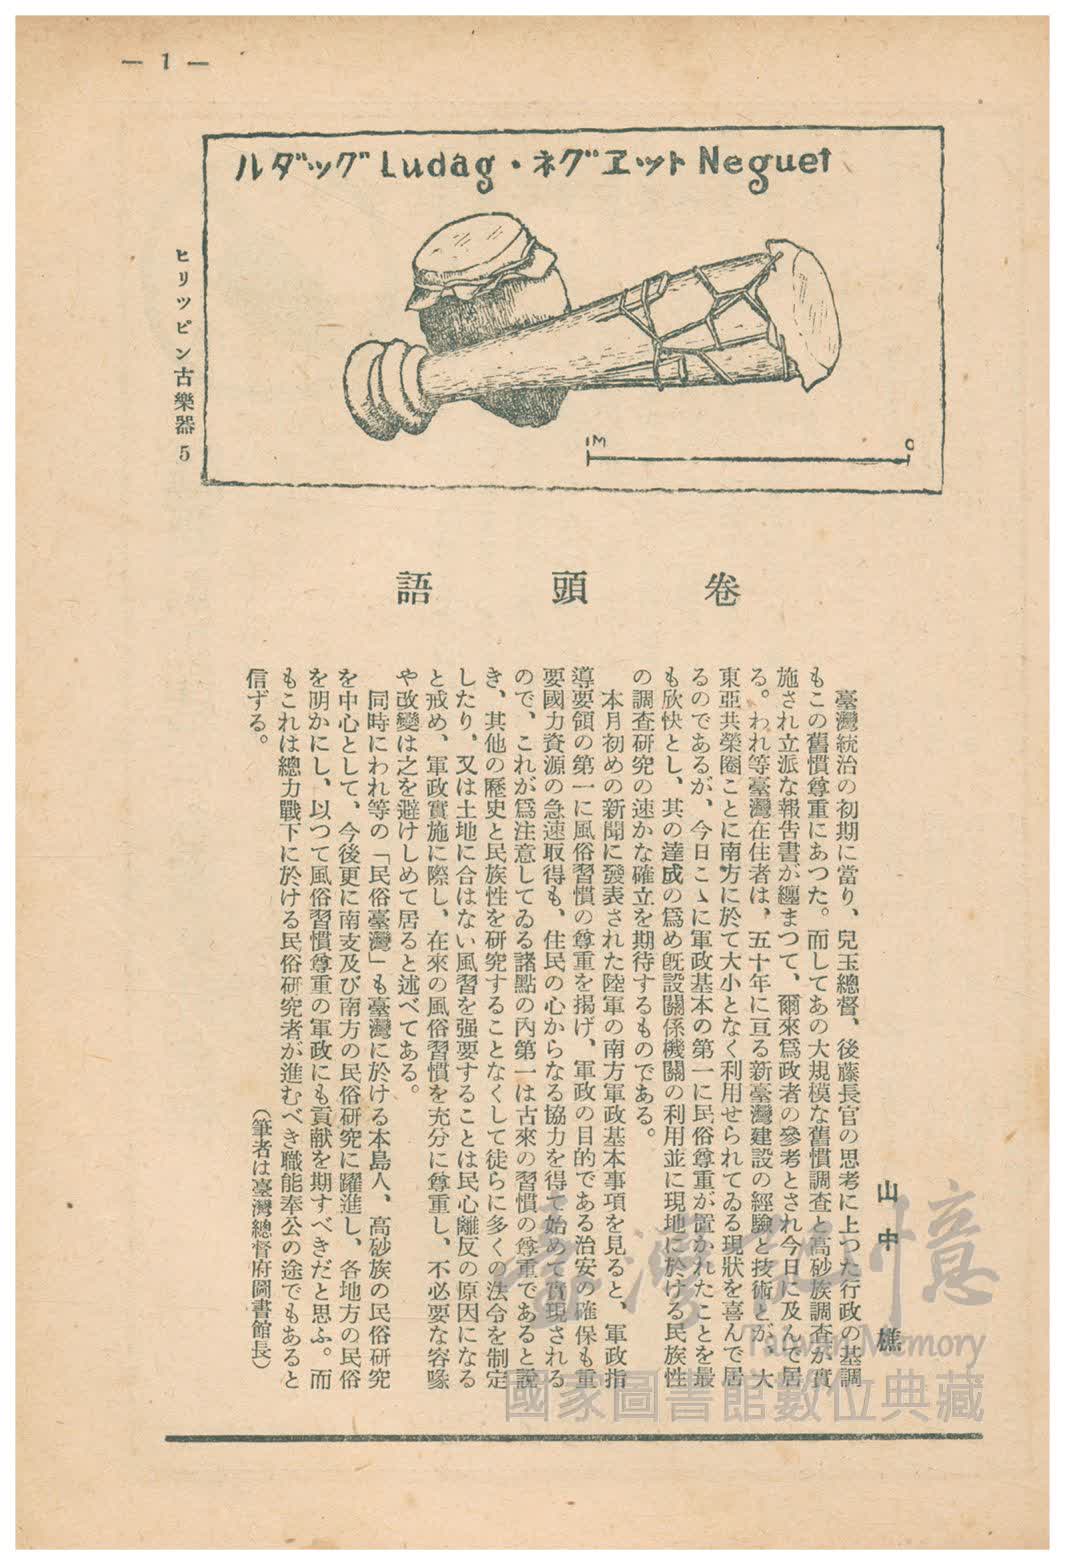 — 1 —
ルダッグ Ludag・ネグヱット Neguet
ヒリツピン古樂器 5
1M 0
卷頭語
山中 樵
臺灣統治の初期に當り、兒玉總督、後藤長官の思考に上つた行政の基調
もこの舊慣尊重にあつた。而してあの大規模な舊慣調查と高砂族調查が實
施され立派な報吿書が纒まつて、爾來爲政者の參考とされ今日に及んで居
る。われ等臺灣在住者は、五十年に亘る新臺灣建設の經驗と技術とが、大
東亞共榮圈ことに南方に於て大小となく利用せられてゐる現狀を喜んで居
るのであるが、今日こゝに軍政基本の第一に民俗尊重が置かれたことを最
も欣快とし、其の達成の爲め旣設關係機關の利用並に現地に於ける民族性
の調查硏究の速かな確立を期待するものである。
本月初めの新聞に發表された陸軍の南方軍政基本事項を見ると、軍政指
導要領の第一に風俗習慣の尊重を揭げ、軍政の目的である治安の確保も重
要國力資源の急速取得も、住民の心からなる協力を得て始めて實現される
ので、これが爲注意してゐる諸點の內第一は古來の習慣の尊重であると說
き、其他の歷史と民族性を硏究することなくして徒らに多くの法令を制定
したり、又は土地に合はない風習を强要することは民心離反の原因になる
と戒め、軍政實施に際し、在來の風俗習慣を充分に尊重し、不必要な容喙
や改變は之を避けしめて居ると述べてある。
同時にわれ等の「民俗臺灣」も臺灣に於ける本島人、高砂族の民俗硏究
を中心として、今後更に南支及び南方の民俗硏究に躍進し、各地方の民俗
を明かにし、以つて風俗習慣尊重の軍政にも貢献を期すべきだと思ふ。而
もこれは總力戰下に於ける民俗硏究者が進むべき職能奉公の途でもあると
信ずる。
（筆者は臺灣總督府圖書館長）
臺灣記憶
Taiwan Memory
國家圖書館數位典藏